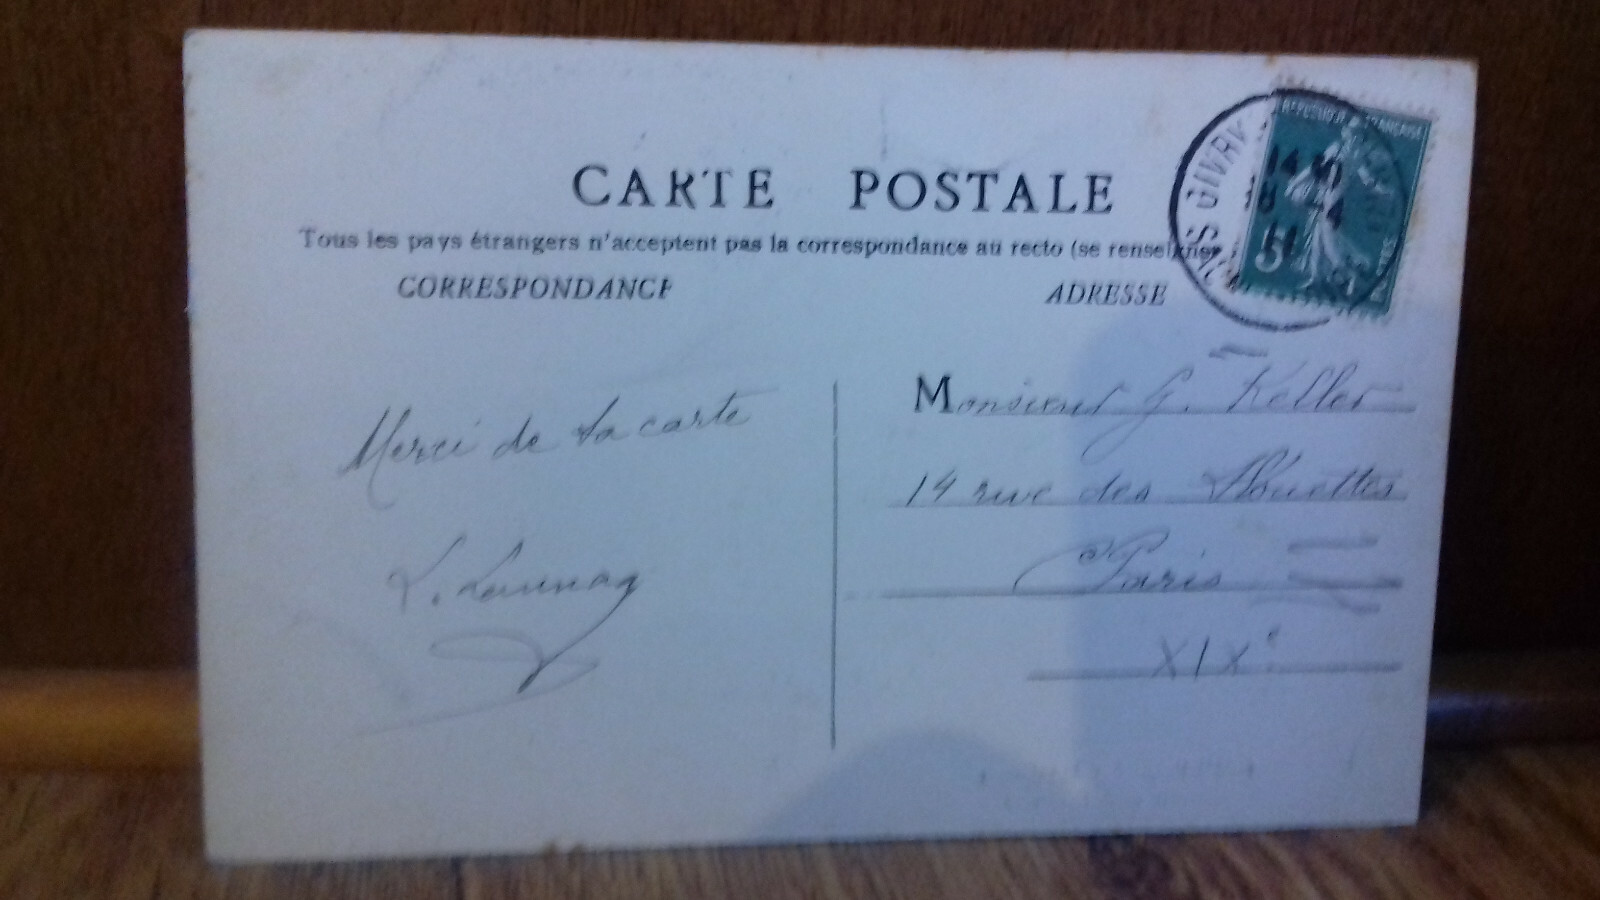 CARTE POSTALE
Tous les pays étrangers n'acceptent pas la correspondance au recto (se renseigner
CORRESPONDANCE
ADRESSE
REPUBLIQUE FRANÇAISE
14
8 4
11
5
POSTES
GIVRY
Monsieur G. Keller
14 rue des Alouettes
Paris
XIXe
Merci de ta carte
Launay